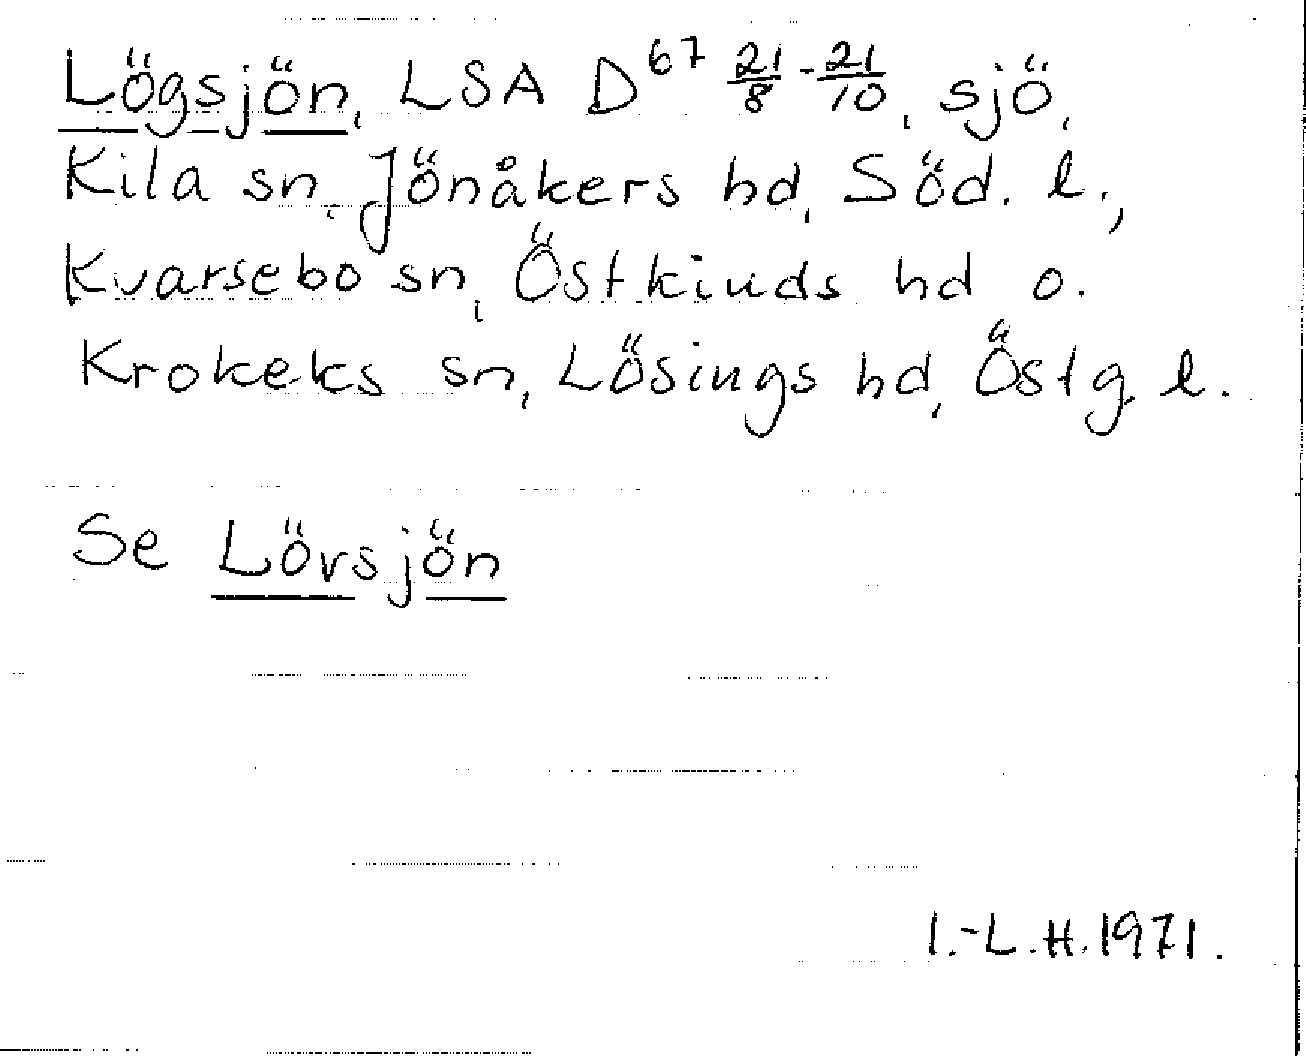 Lögsjön, LSA D⁶⁷ 21/8 - 21/10, sjö,
Kila sn, Jönåkers hd, Söd. l.,
Kvarsebo sn, Östkinds hd o.
Krokeks sn, Lösings hd, Östg l.
Se Lövsjön
I.-L.H. 1971.